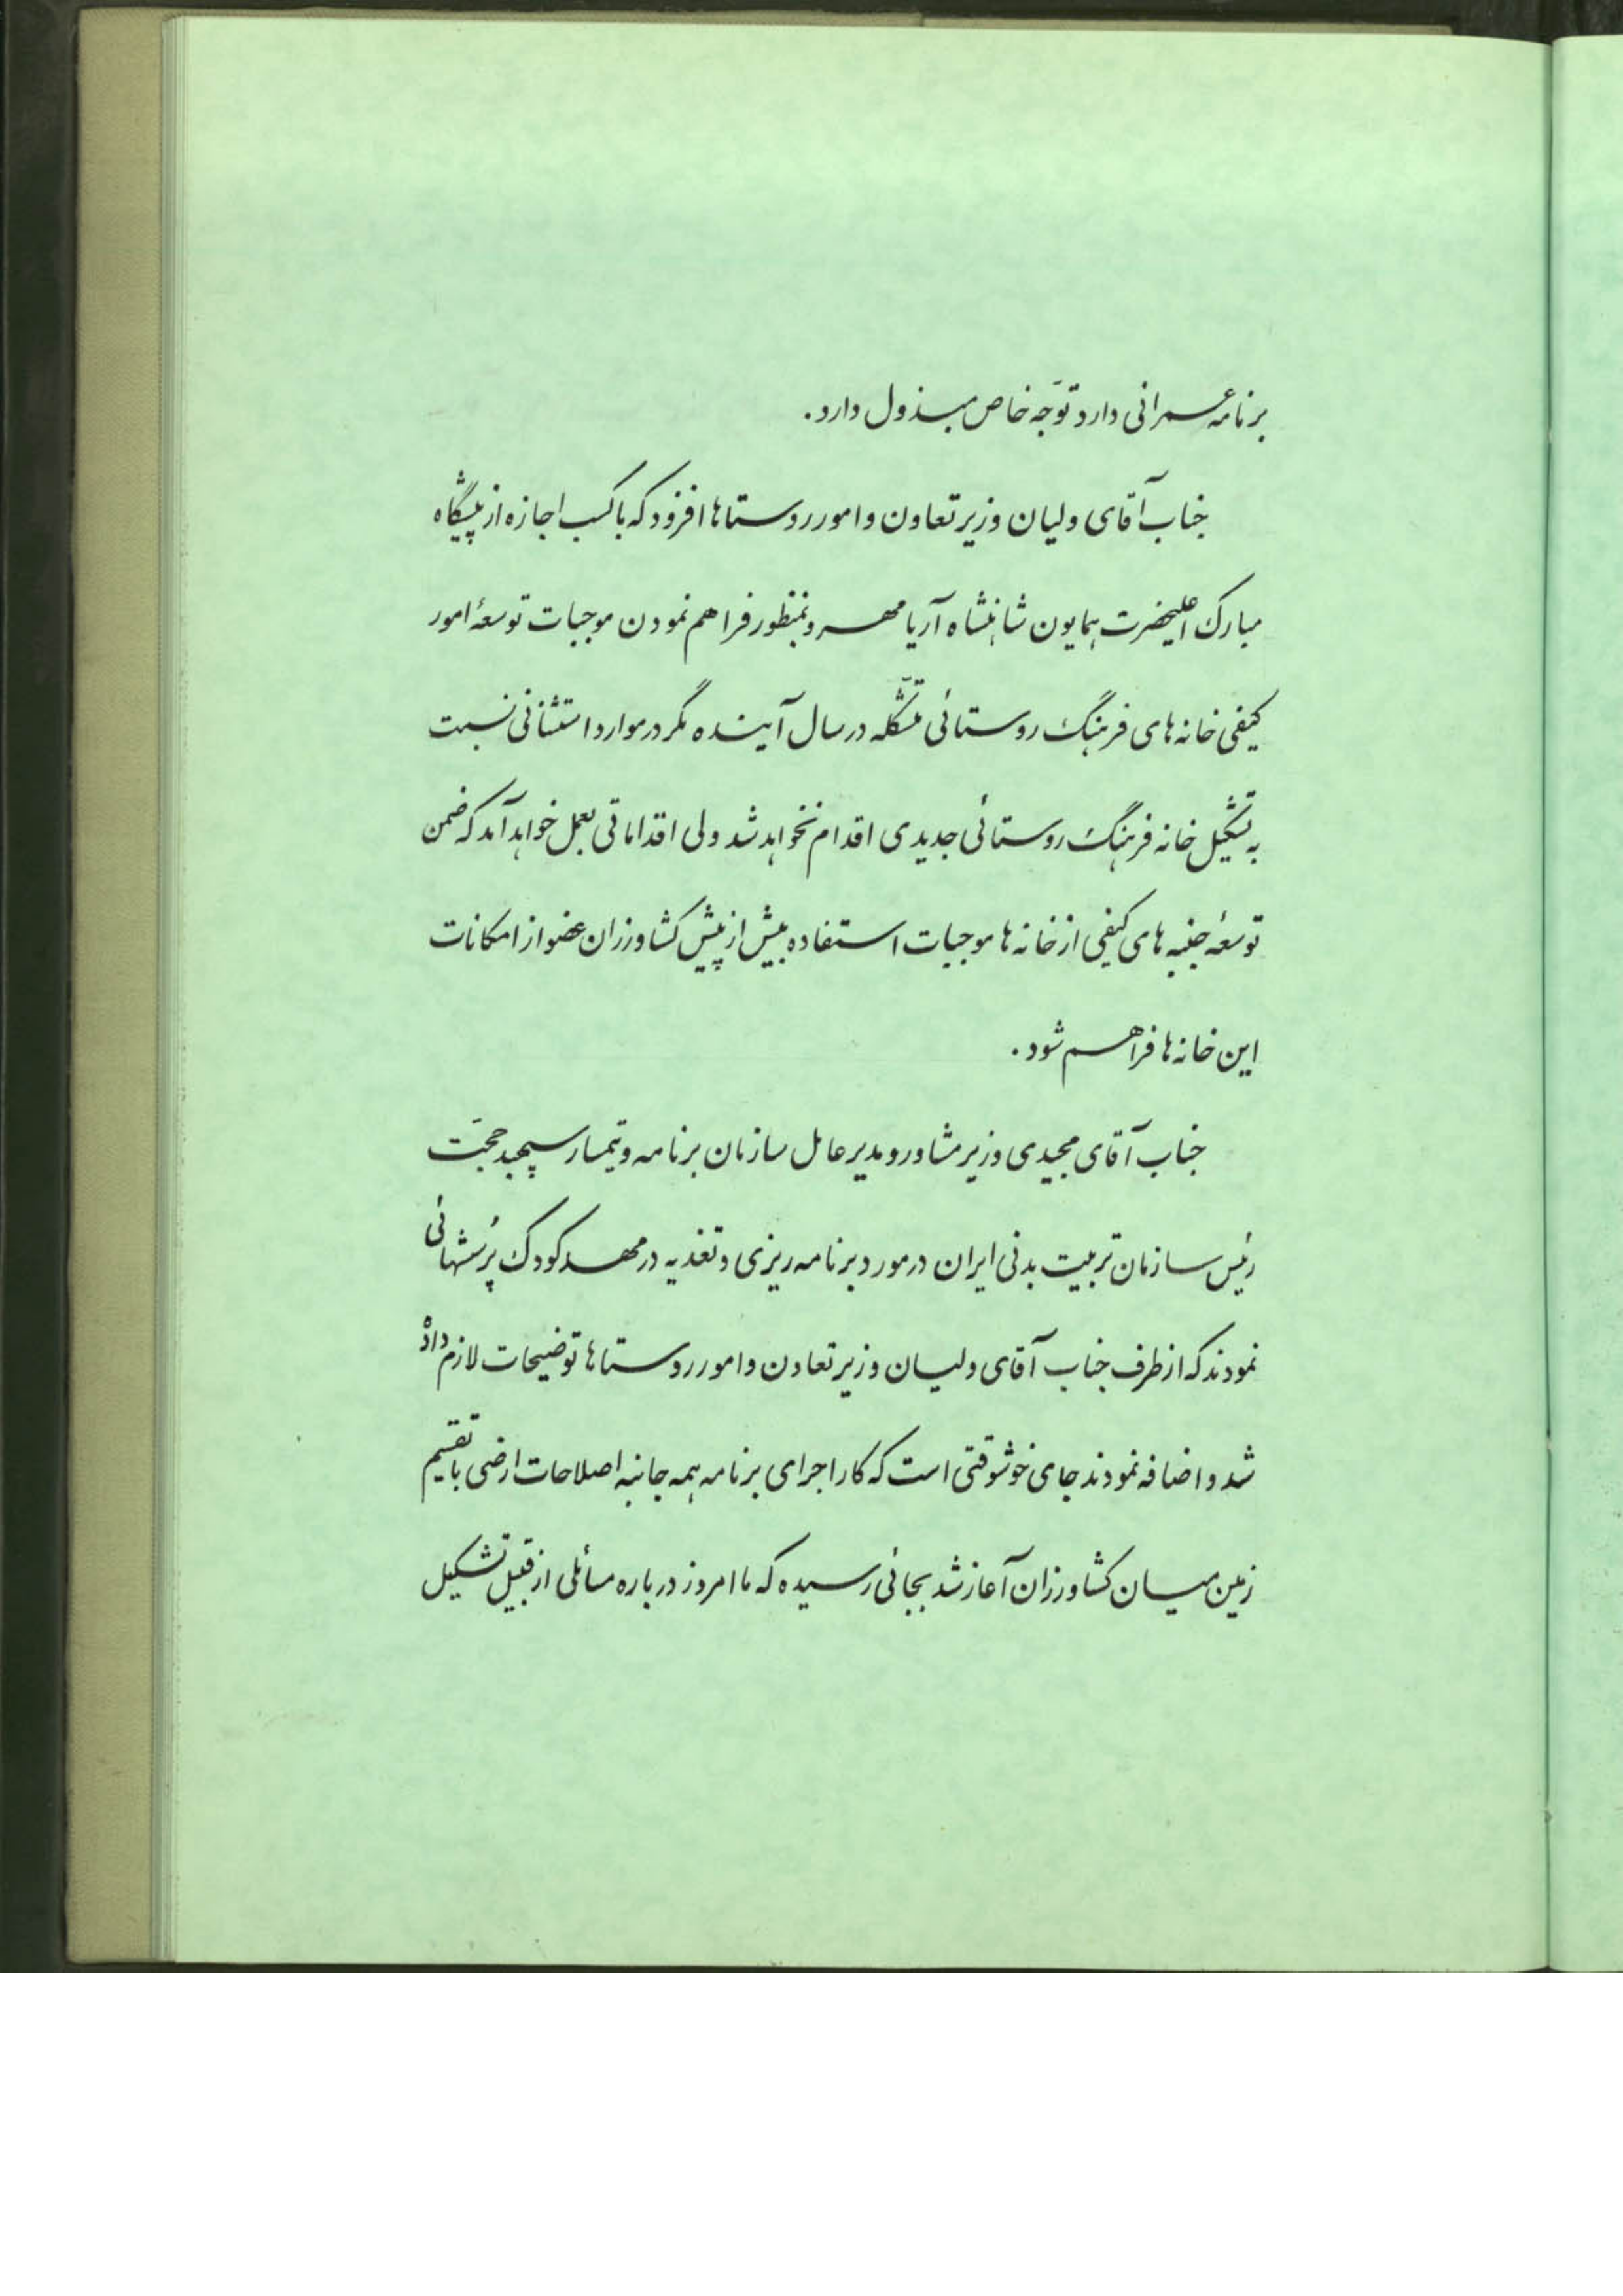 برنامه عمرانی دارد توجّه خاص مبذول دارد.
جناب آقای ولیان وزیر تعاون و امور روستاها افزود که با کسب اجازه از پیشگاه
مبارک اعلیحضرت همایون شاهنشاه آریامهر و بمنظور فراهم نمودن موجبات توسعهٔ امور
کیفی خانه‌های فرهنگ روستائی متشکّله در سال آینده مگر در موارد استثنائی نسبت
به تشکیل خانه فرهنگ روستائی جدیدی اقدام نخواهد شد ولی اقداماتی بعمل خواهد آمد که ضمن
توسعهٔ جنبه‌های کیفی از خانه‌ها موجبات استفاده بیش از پیش کشاورزان عضو از امکانات
این خانه‌ها فراهم شود.
جناب آقای مجیدی وزیر مشاور و مدیر عامل سازمان برنامه و تیمسار سپهبد حجّت
رئیس سازمان تربیت بدنی ایران در مورد برنامه‌ریزی و تغذیه در مهد کودک پُرسشهائی
نمودند که از طرف جناب آقای ولیان وزیر تعاون و امور روستاها توضیحات لازم داده
شد و اضافه نمودند جای خوشوقتی است که کار اجرای برنامه همه جانبه اصلاحات ارضی با تقسیم
زمین میان کشاورزان آغاز شد بجائی رسیده که ما امروز درباره مسائلی از قبیل تشکیل